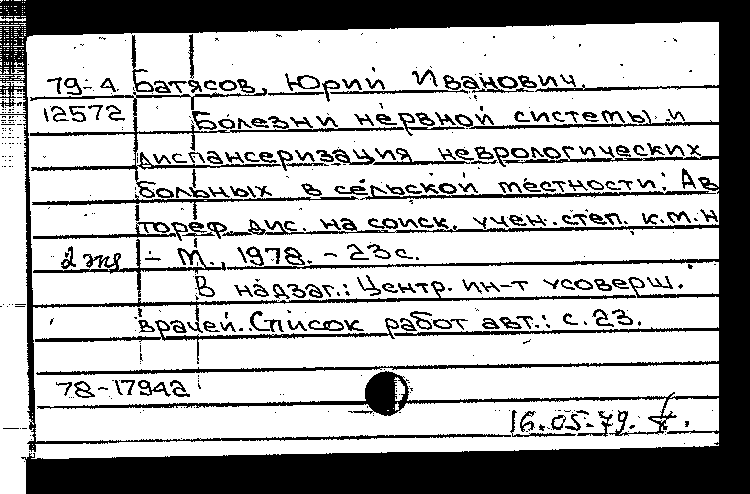 79-4 Батясов, Юрий Иванович.
12572 Болезни нервной системы и
диспансеризация неврологических
больных в сельской местности: Ав
тореф. дис. на соиск. учен. степ. к.м.н
2 экз – М., 1978. – 23 с.
В надзаг.: Центр. ин-т усоверш.
врачей. Список работ авт.: с. 23.
78-17942
16.05.79.